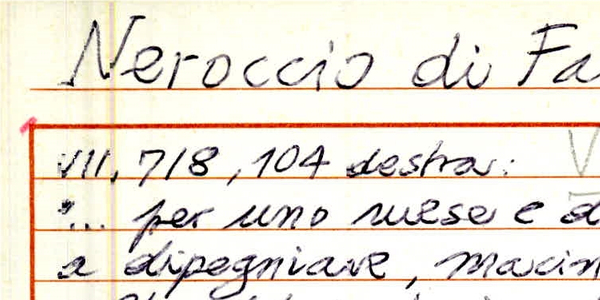 Neroccio di Fa
VII, 718, 104 destra:
"... per uno mese e d
a dipegniare, macin